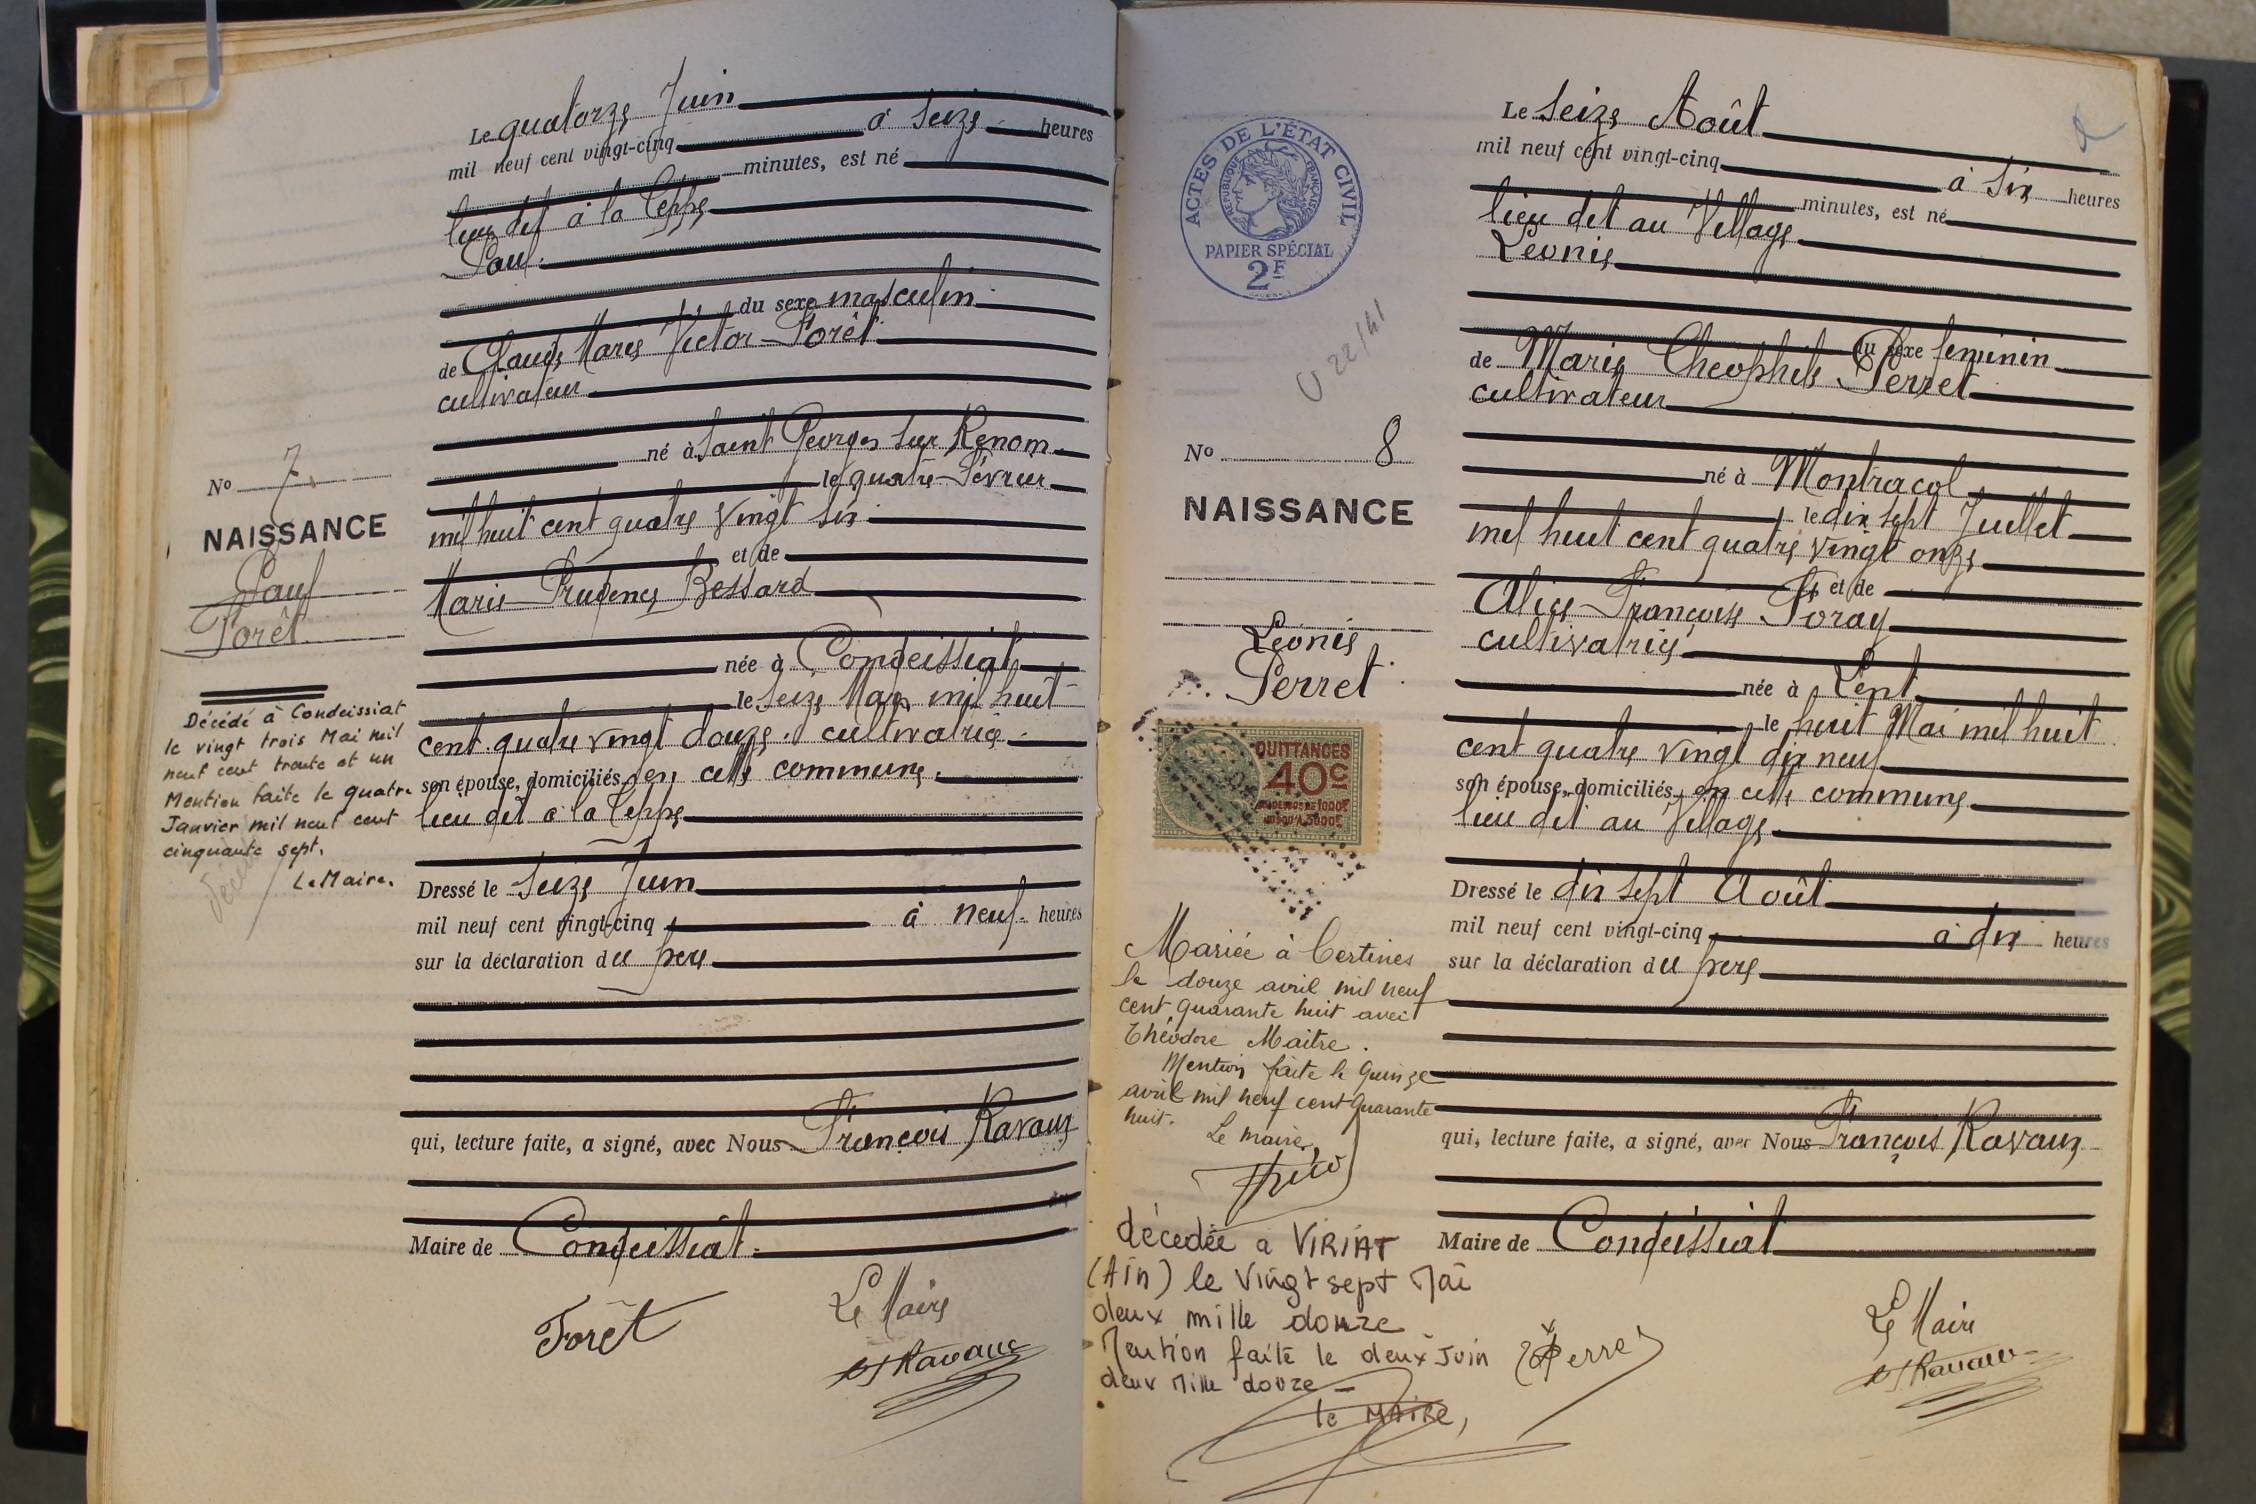 Le quatorze Juin
mil neuf cent vingt-cinq à seize heures
minutes, est né
lieu dit à la Teppe
Paul
du sexe masculin
de Claude Marie Victor Forêt
cultivateur
né à Saint Georges sur Renom
le quatre Février
mil huit cent quatre vingt six
et de
Marie Prudence Bessard
née à Condeissiat
le seize Mars mil huit
cent quatre vingt douze. cultivatrice
son épouse, domiciliés en cette commune,
lieu dit à la Teppe
Dressé le seize Juin
mil neuf cent vingt-cinq à neuf heures
sur la déclaration du père
qui, lecture faite, a signé, avec Nous François Ravaux
Maire de Condeissiat
Le Maire
Forêt
Ravaux
No 7.
NAISSANCE
Paul
Forêt
Décédé à Condeissiat
le vingt trois Mai mil
neuf cent trente et un
Mention faite le quatre
Janvier mil neuf cent
cinquante sept.
Le Maire.
ACTES DE L'ÉTAT CIVIL
RÉPUBLIQUE FRANÇAISE
PAPIER SPÉCIAL
2F
U 22/41
No 8
NAISSANCE
Léonie
Perret
QUITTANCES
40c
Mariée à Certines
le douze avril mil neuf
cent quarante huit avec
Théodore Maitre.
Mention faite le quinze
avril mil neuf cent quarante
huit.
Le maire
décedée a VIRIAT
(Ain) le vingt sept Mai
deux mille douze
Mention faite le deux Juin
deux Mille douze
le MAIRE,
Le seize Août
mil neuf cent vingt-cinq à six heures
minutes, est né
lieu dit au Village
Léonie
du sexe feminin
de Marie Théophile Perret
cultivateur
né à Montracol
le dix sept Juillet
mil huit cent quatre vingt onze
et de
Alice Françoise Foray
cultivatrice
née à Lent
le huit Mai mil huit
cent quatre vingt dix neuf
son épouse, domiciliés en cette commune
lieu dit au Village
Dressé le dix sept Août
mil neuf cent vingt-cinq à dix heures
sur la déclaration du père
qui, lecture faite, a signé, avec Nous François Ravaux
Maire de Condeissiat
Le Maire
Perret
Ravaux